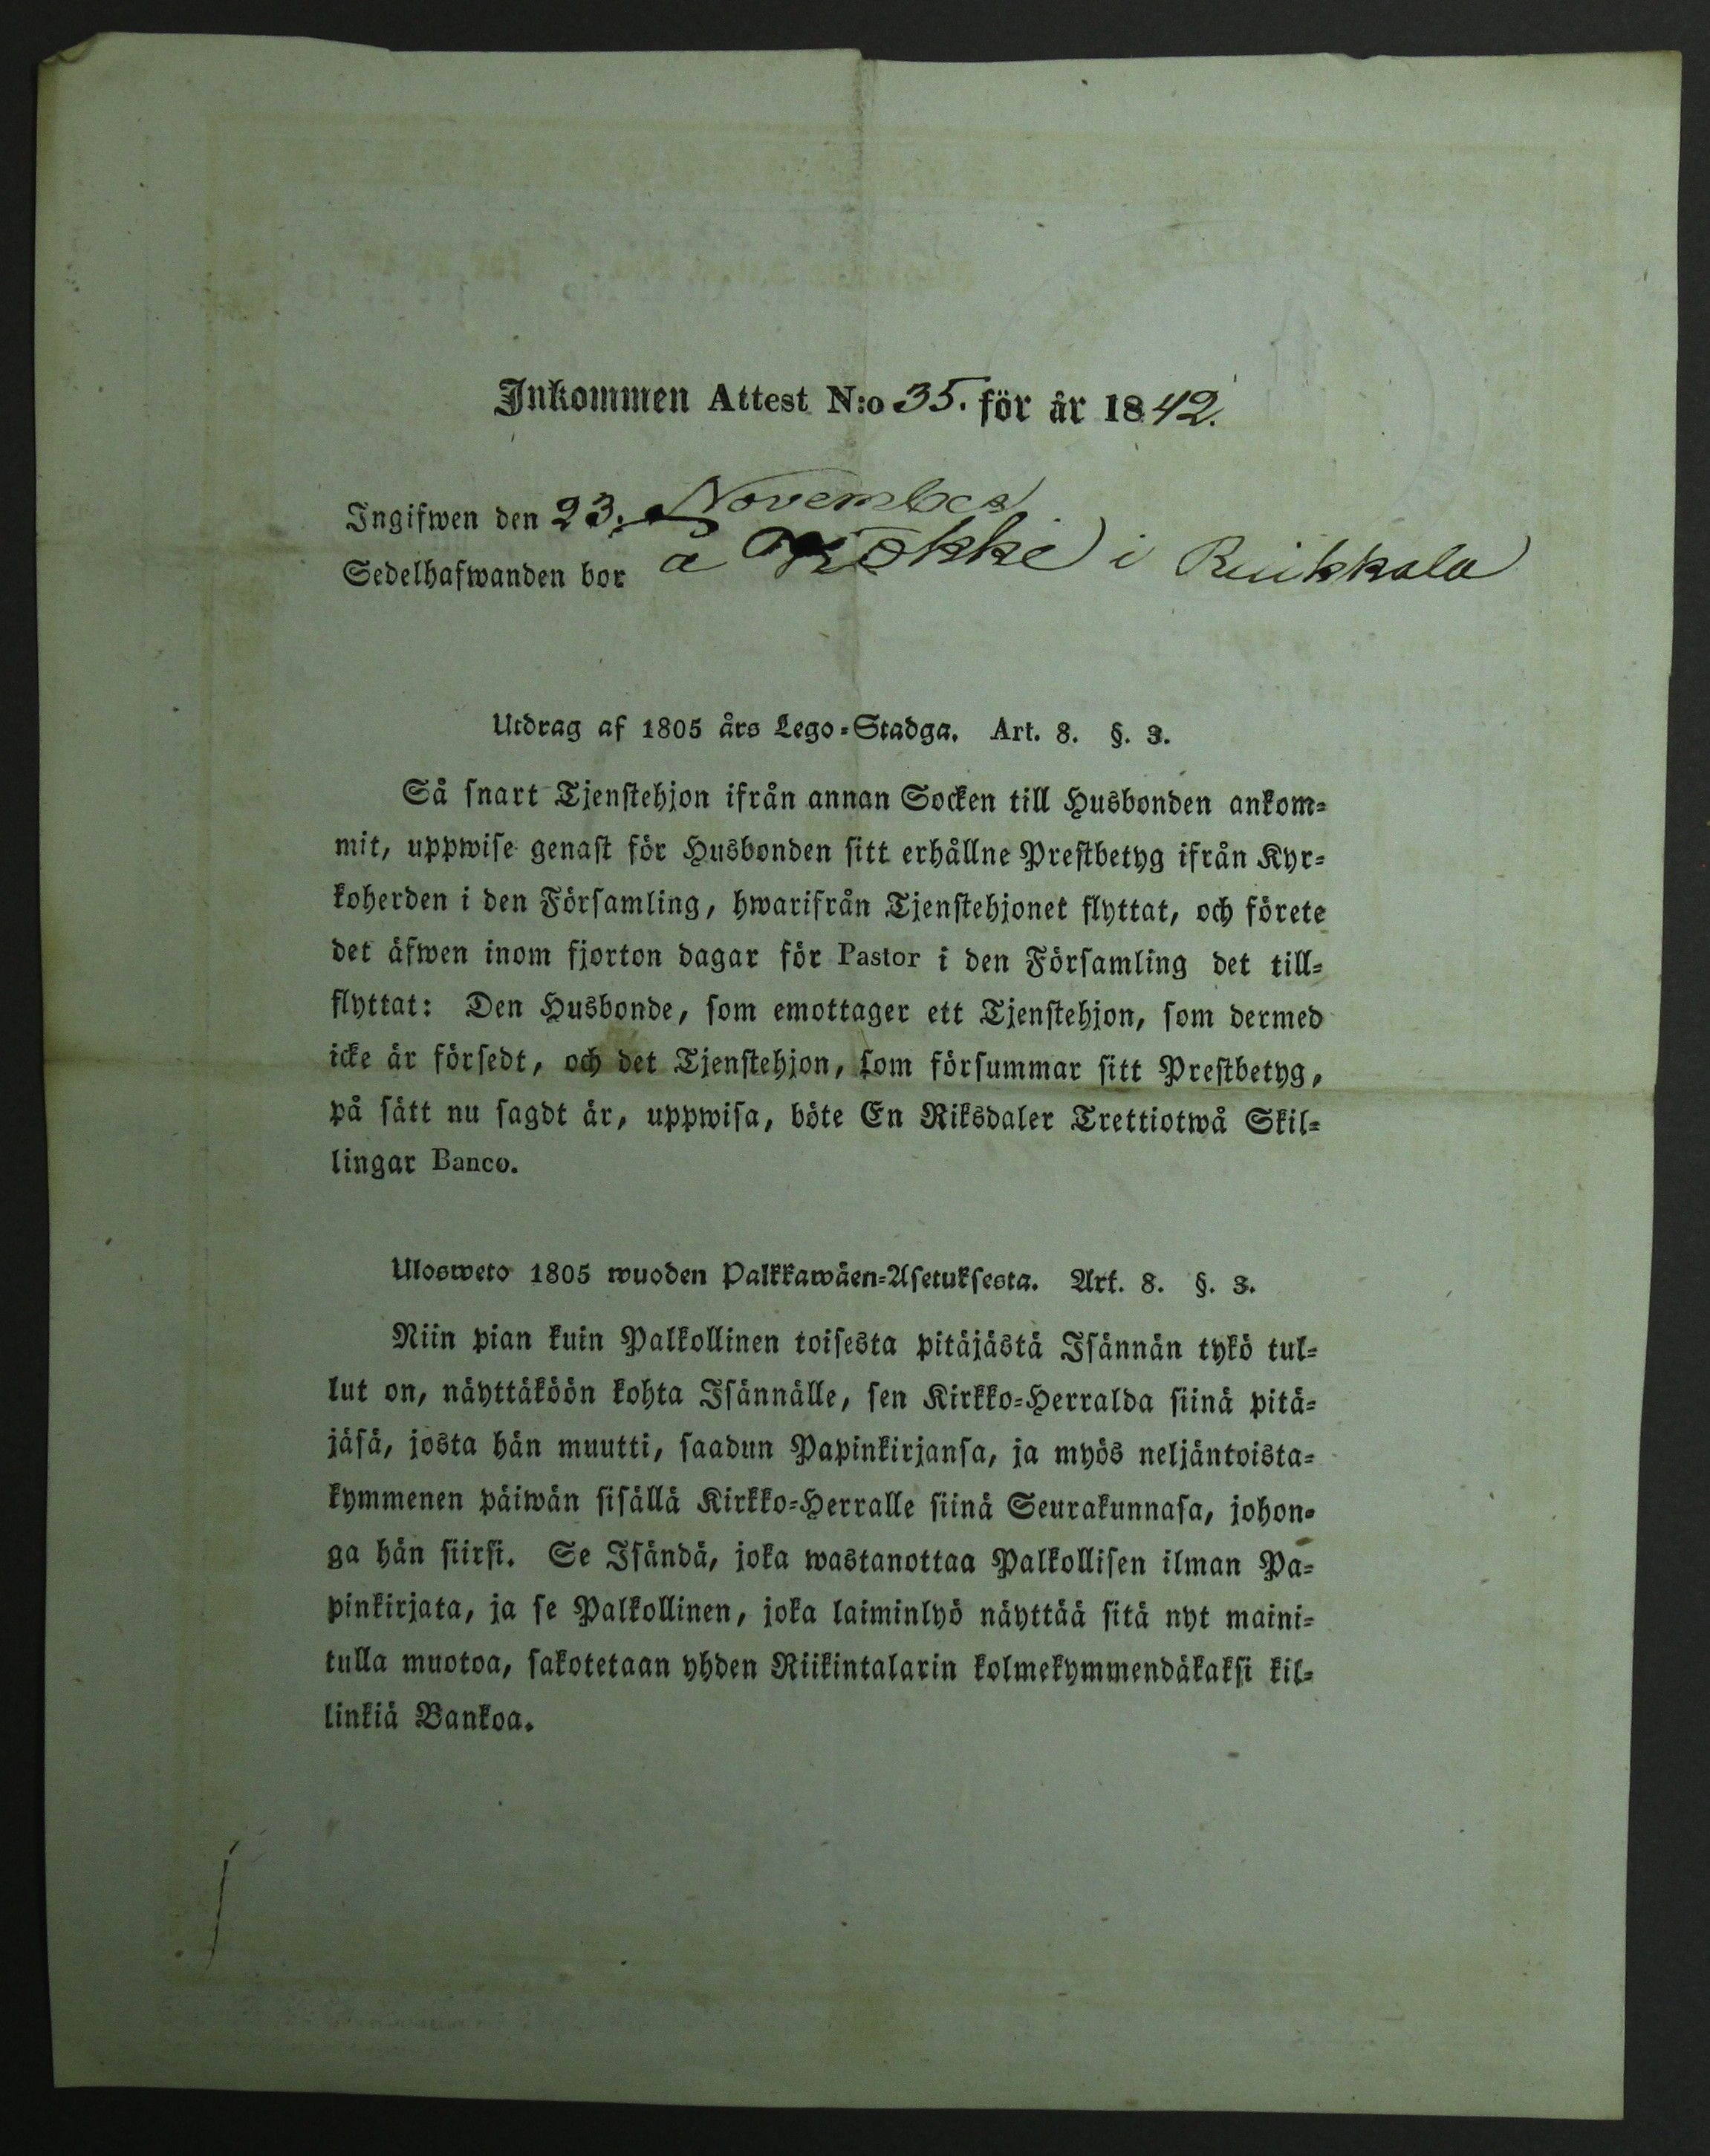 Inkommen Attest N:o 35. för år 1842.
Ingifwen den 23. November
Sedelhafwanden bor å Kokke i Ruikkala
Utdrag af 1805 års Lego-Stadga. Art. 8. §. 3.
Så snart Tjenstehjon ifrån annan Socken till Husbonden ankom-
mit, uppwise genast för Husbonden sitt erhållne Prestbetyg ifrån Kyr-
koherden i den Församling, hwarifrån Tjenstehjonet flyttat, och förete
det äfwen inom fjorton dagar för Pastor i den Församling det till-
flyttat: Den Husbonde, som emottager ett Tjenstehjon, som dermed
icke är försedt, och det Tjenstehjon, som försummar sitt Prestbetyg,
på sätt nu sagdt är, uppwisa, böte En Riksdaler Trettiotwå Skil-
lingar Banco.
Ulosweto 1805 wuoden Palkkawäen-Asetuksesta. Art. 8. §. 3.
Niin pian kuin Palkollinen toisesta pitäjästä Isännän tykö tul-
lut on, näyttäköön kohta Isännälle, sen Kirkko-Herralda siinä pitä-
jäsä, josta hän muutti, saadun Papinkirjansa, ja myös neljäntoista-
kymmenen päiwän sisällä Kirkko-Herralle siinä Seurakunnasa, johon-
ga hän siirsi. Se Isändä, joka wastanottaa Palkollisen ilman Pa-
pinkirjata, ja se Palkollinen, joka laiminlyö näyttää sitä nyt maini-
tulla muotoa, sakotetaan yhden Riikintalarin kolmekymmendäkaksi kil-
linkiä Bankoa.